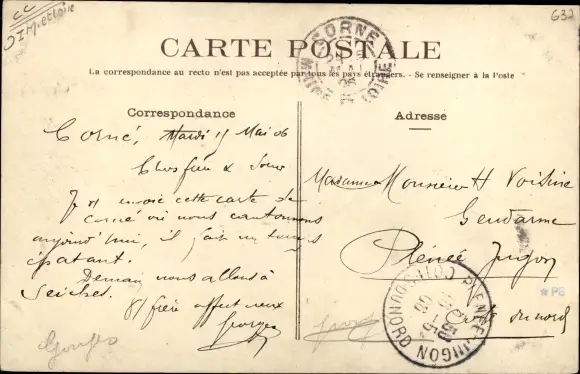 CC
I M.et Loire
632
CORNE
MAINE ET LOIRE
CARTE POSTALE
La correspondance au recto n'est pas acceptée par tous les pays étrangers. - Se renseigner à la Poste
Correspondance
Adresse
Corné, Mardi 15 Mai 06
Chos frère & Sœur
envoie cette carte de
corné où nous cantonnons
aujourd'hui, il fait un temps
épatant.
Demain nous allons à
Seiches.
frère affectueux
Georges
Madame Monsieur H Voisine
Gendarme
Plénée Jugon
Côtes du nord
PLENEE-JUGON
COTES-DU-NORD
PG